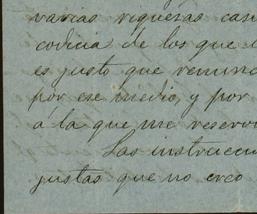 varias riquezas can
codicia de los que
es justo que renunc
por ese medio, y por
a la que me reservo
Las instruccion
justas que no creo